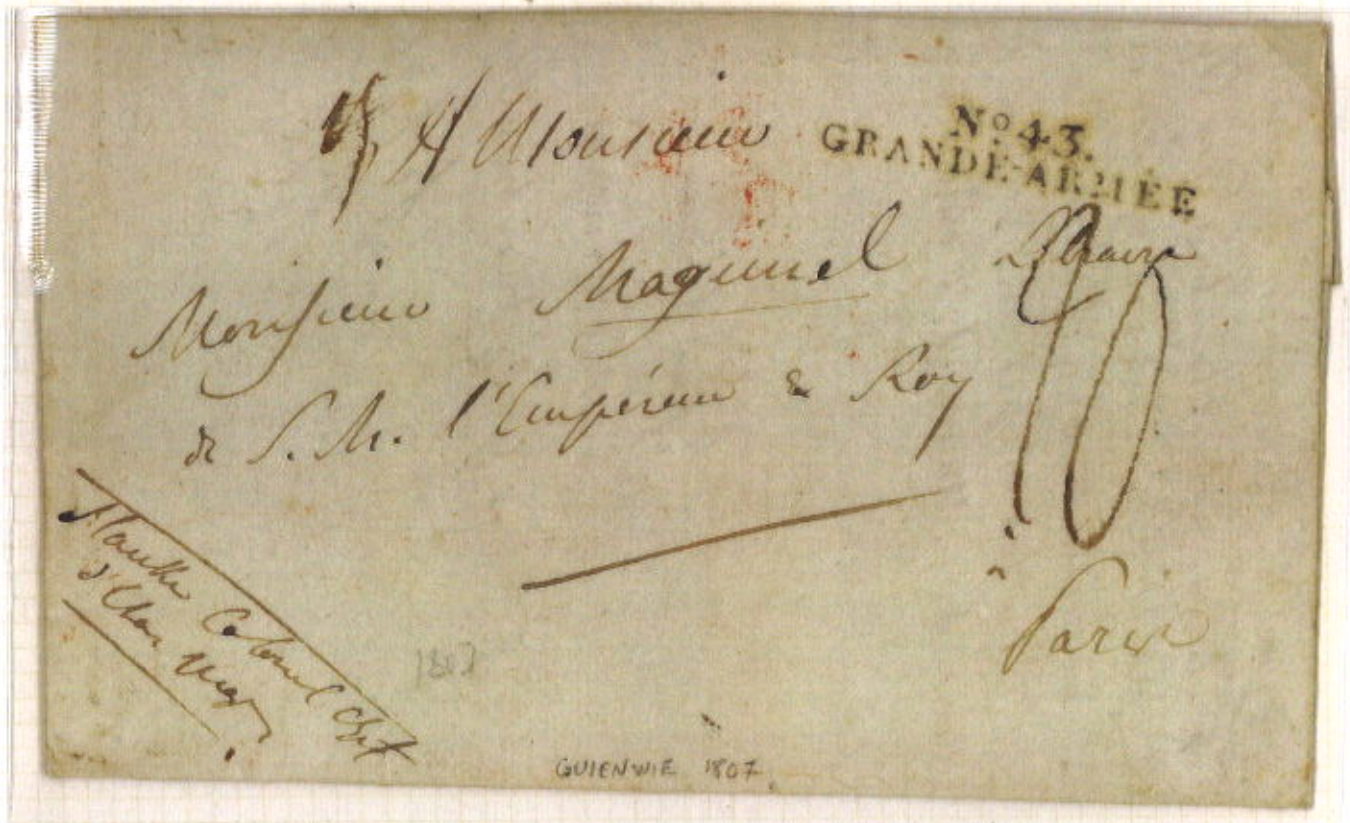 A Monsieur
No. 43.
GRANDE-ARMÉE
Monsieur Magimel Libraire
de S. M. l'Empéreur & Roy
10
à
Paris
Colonel Chef
d'Etat Major
1807
GUIENWIE 1807